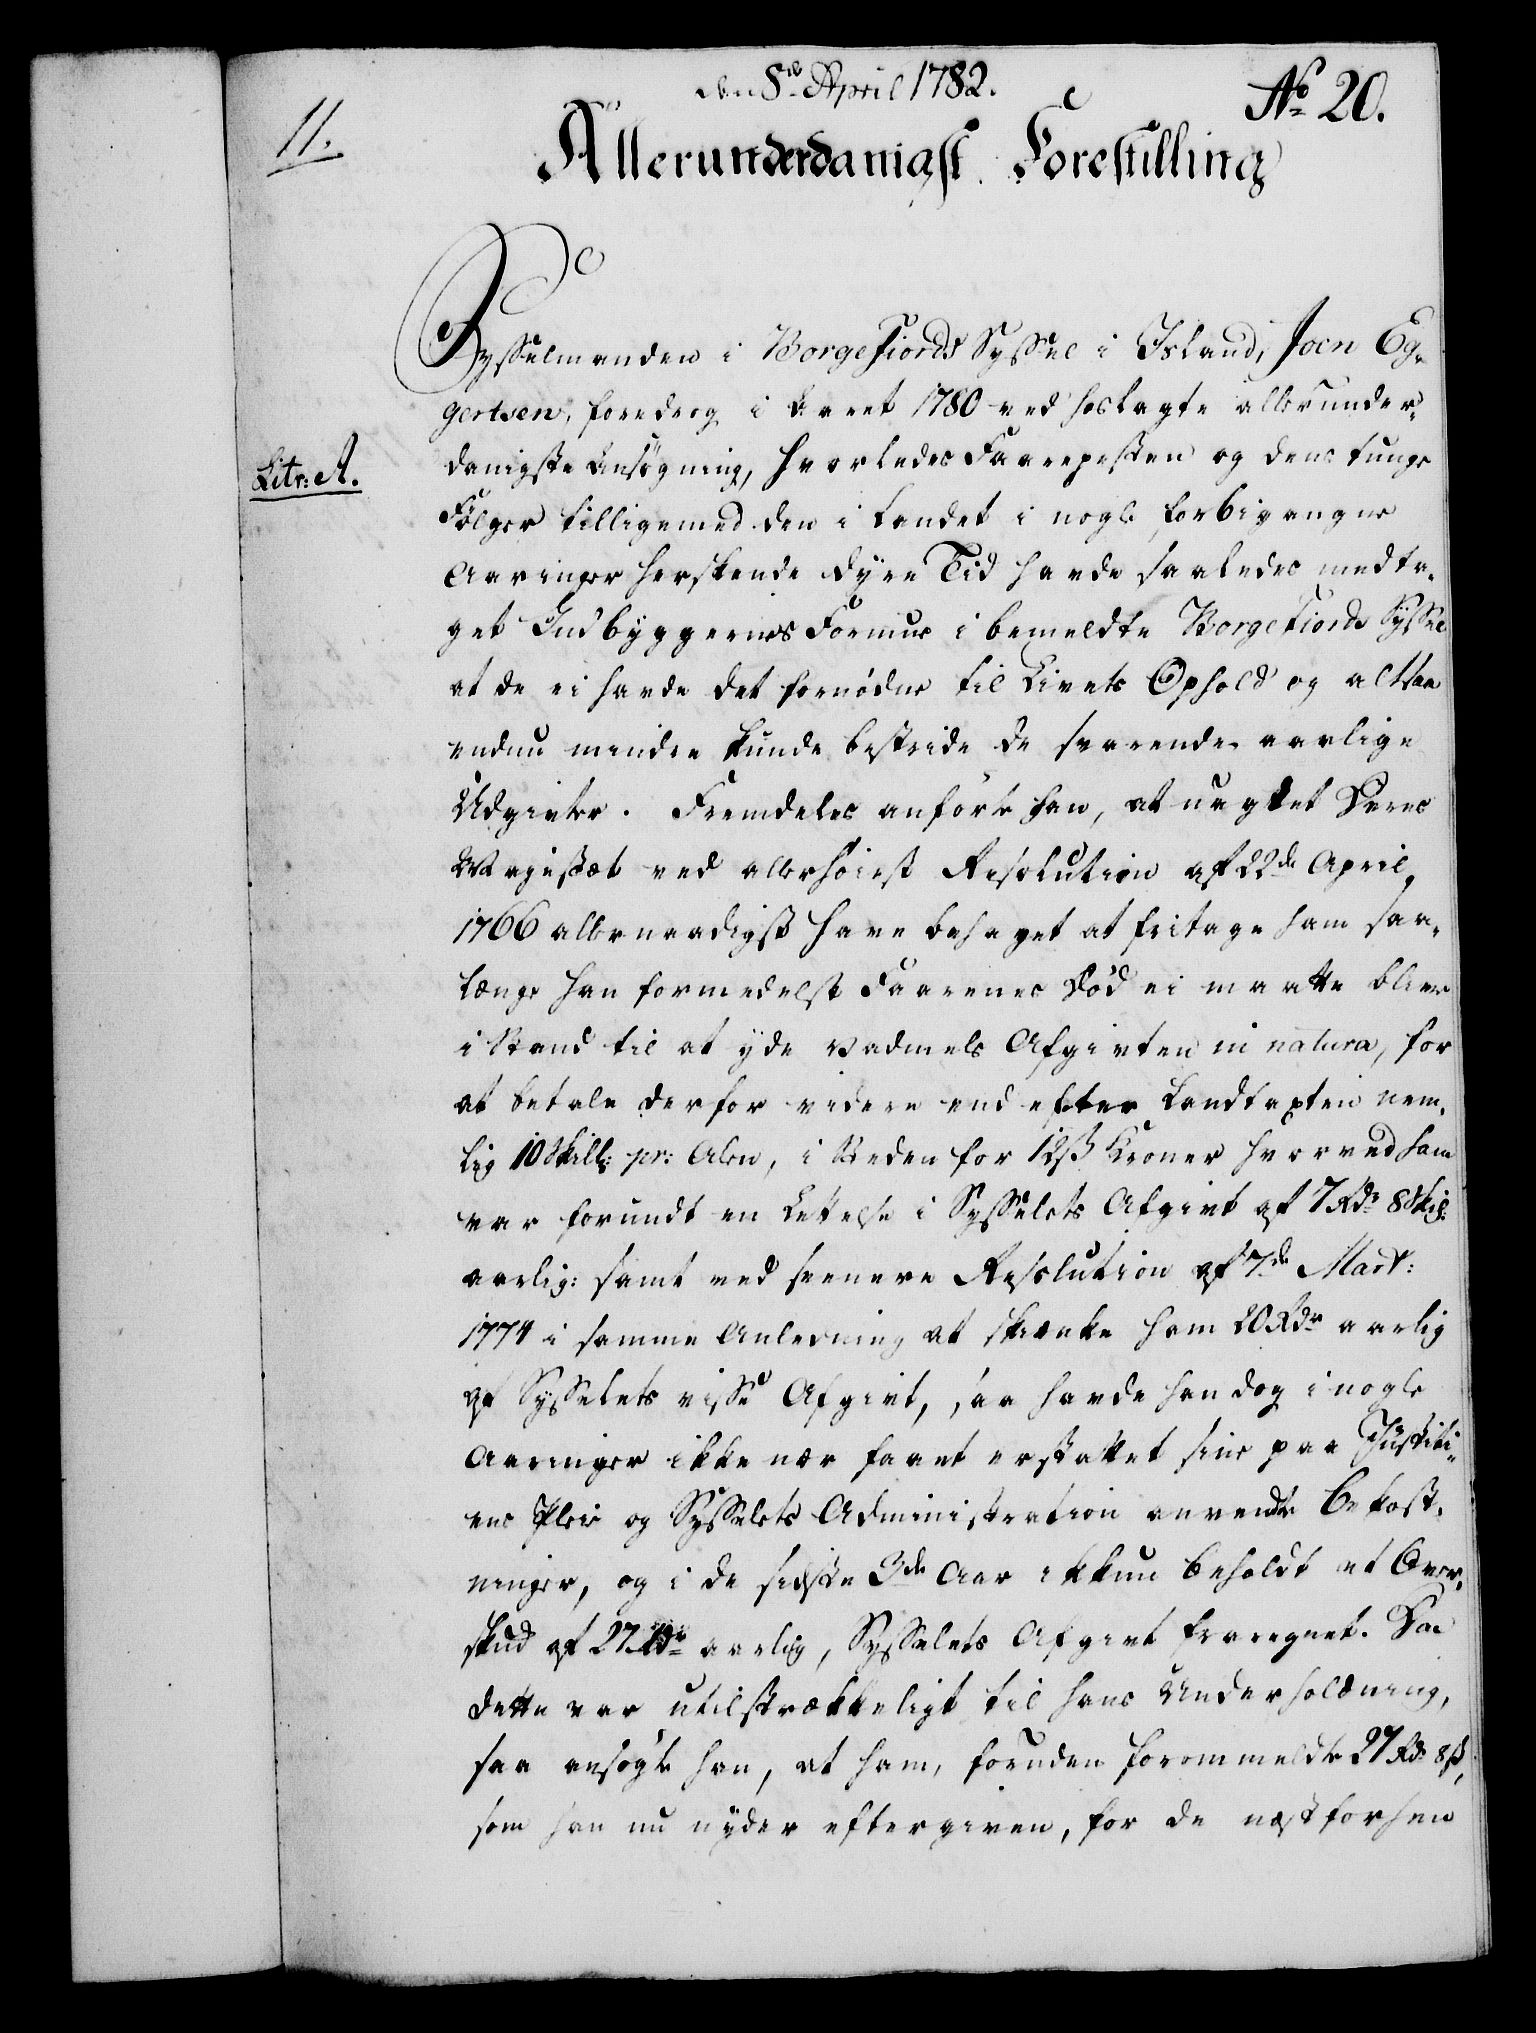 den 8de April 1782.
No 20.
11.
Allerunderdanigst Forestilling
Sysselmanden i Borgefiords Syssel i Island, Joen Eg-
gertsen, foredrog i Aaret 1780 ved hoslagte allerunder-
Litr: A.
danigste Ansøgning, hvorledes Faarepesten og dens tunge
Følger tilligemed den i Landet i nogle forbigangne
Aaringer herskende dyre Tid havde saaledes medta-
get Indbyggernes Formue i bemeldte Borgefiords Syssel
at de ei havde det fornødne til Livets Ophold og altsaa
endnu mindre kunde bestride de svarende aarlige
Udgivter. Fremdeles anførte han, at uagtet Deres
Majestæt ved allerhøiest Resolution af 22de April
1766 allernaadigst have behaget at fritage ham saa-
længe han formedelst Faarenes Død ei maatte blive
i Stand til at yde Vadmels Afgivten in natura, for
at betale derfor videre end efter Landtaxten nem-
lig 10 Skill: pr: Alen, i Steden for 12 ß Kroner hvorved ham
var forundt en Lettelse i Sysselets Afgivt af 7 Rdr 8 Skil:
aarlig: samt ved seenere Resolution af 7de Mart:
1774 i samme Anledning at skienke ham 20 Rdr aarlig
af Sysselets visse Afgivt, saa havde han dog i nogle
Aaringer ikke nær faaet erstattet sine paa Justiti-
ens Pleie og Sysselets Administration anvendte Bekost-
ninger, og i de sidste 3de Aar ikkun beholdt et Over-
skud af 27 Rdr aarlig, Sysselets Afgivt fraregnet. Da
dette var utilstrækkeligt til hans Underholdning,
saa ansøgte han, at ham, foruden forommeldte 27 Rd 8 ß,
som han nu nyder eftergiven, for de næstforhen